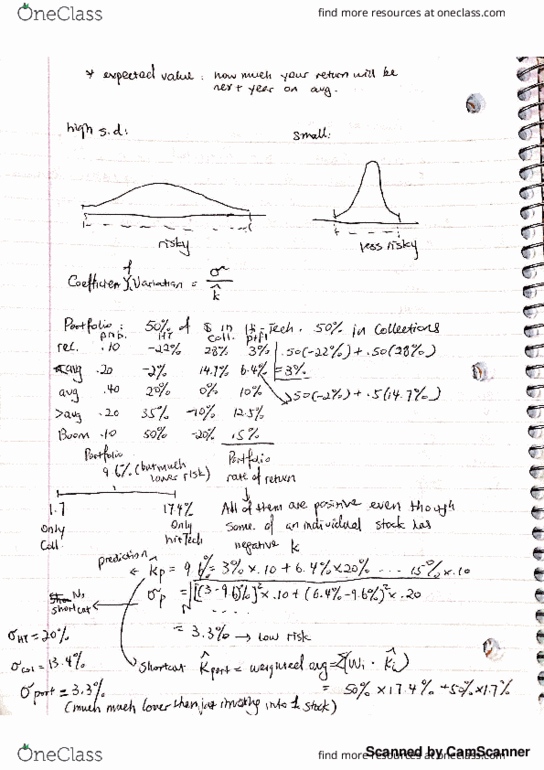 OneClass
find more resources at oneclass.com
* expected value: how much your return will be
next year on avg.
high s.d:
small:
risky
less risky
Coefficient of Variation = σ / k̂
Portfolio: 50% of $ in H-Tech. 50% in Collections
prob. HT Coll. ptfl
rec. .10 -22% 28% 3% .50(-22%) + .50(28%)
<avg .20 -2% 14.7% 6.4% = 3%
avg .40 20% 0% 10% .50(-2%) + .5(14.7%)
>avg .20 35% -10% 12.5%
Boom .10 50% -20% 15%
Portfolio
9.6% (but much
lower risk)
Portfolio
rate of return
1.7
Only
Coll.
17.4%
Only
hitech
All of them are positive even though
some of an individual stock has
negative k
prediction
k̂p = 9.6% = 3% x .10 + 6.4% x 20% ... 15% x .10
No
shortcut
σp = √[(3-9.6)%]² x .10 + (6.4%-9.6%)² x .20
....
= 3.3% → low risk
σHT = 20%
σcol = 13.4%
σport = 3.3%
shortcut k̂port = weighted avg = Σ(Wi . k̂i)
= 50% x 17.4% + 50% x 1.7%
(much much lower than just investing into 1 stock)
OneClass
find more resources at oneclass.com
Scanned by CamScanner